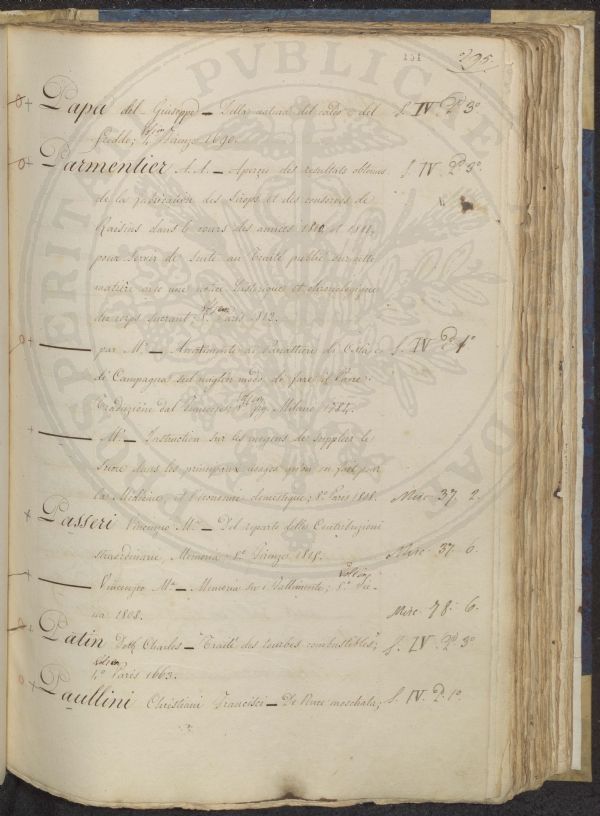 151 295.
Papa del Giuseppe — Della natura del caldo e del S. IV. P.d 3.o
freddo; 4.o Firenze 1690.
Parmentier A. A. — Aperçu des résultats obtenus S. IV. P.d 3.o
de la fabrication des Sirops et des conserves de
Raisins dans le cours des années 1810 et 1811,
pour servir de suite au Traité publié sur cette
matière avec une notice historique et chronologique
du corps sucrant 8.o Paris 1812.
— par M.r — Avvertimento ai Panattieri di Città e S. IV P.d 1.o
di Campagna sul miglior modo di fare il Pane.
Traduzione dal Francese; 8.o fig. Milano 1784.
— M.r — Instruction sur les moyens de suppléer le
Sucre dans les principaux usages qu'on en fait pour
la Médecine et l'économie domestique; 8.o Paris 1808. Misc. 37. 2.
Passeri Vincenzo M.a — Del reparto delle Contribuzioni
straordinarie, Memoria 8.o Firenze 1815. Misc. 37. 6.
— Vincenzio M.a — Memoria su i Fallimenti; 8.o Sie-
na 1808. Misc. 78. 6.
Patin Dott. Charles — Traité des tourbes combustibles; S. IV. P.d 3.o
4.o Paris 1663.
Paullini Christiani Francisci — De Nuce moschata; S. IV. P. 1.o